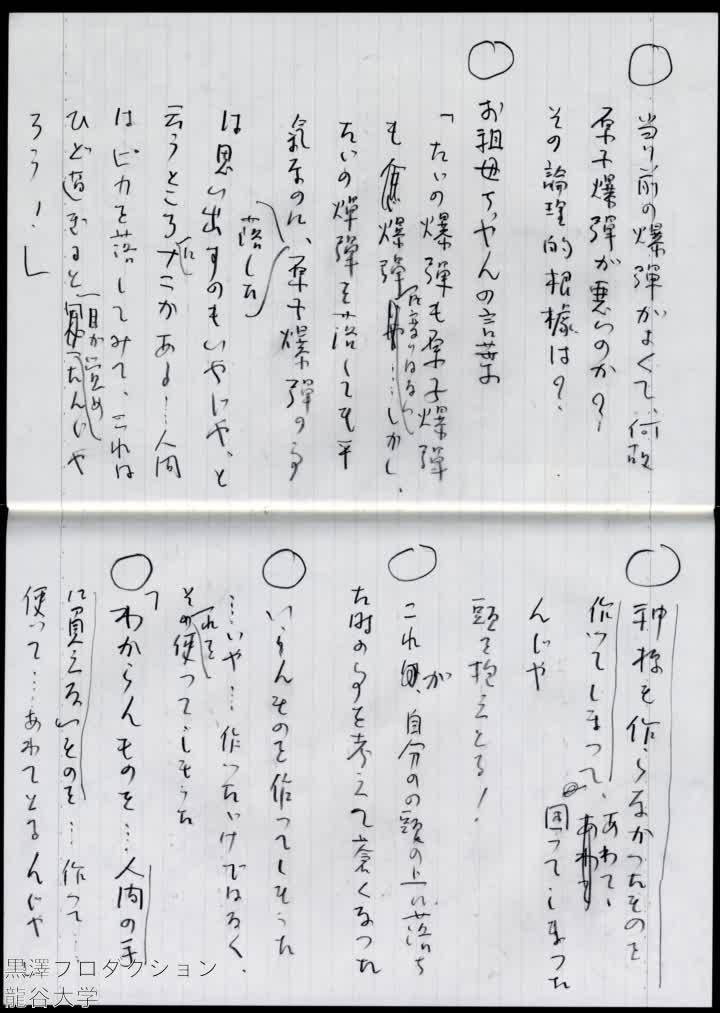 ○ 当り前の爆弾がよくて、何故
原子爆弾が悪いのか？
その論理的根據は？
○ お祖母ちゃんの言葉
「たゞの爆弾も原子爆弾
も爆弾に変りはない…しかし、
たゞの爆弾を落しても平
氣なのに、原子爆弾の事
落した
は思い出すのもいやじゃ、と
云うところになにかある…人間
はピカを落してみて、これは
ひど過ぎると目が覚めたんじゃ
ろう！」
○ 神様も作らなかったものを
作ってしまって、あわてゝ
困ってしまった
んじゃ
頭を抱えとる！
○ これが、自分の頭の上に落ち
た時の事を考えて蒼くなった
○ いらんものを作ってしもうた
…いや…作っただけではなく、
それを使ってしもうた
○「わからんものを…人間の手
に負えないものを…作って…
使って…あわてとるんじゃ
黒澤プロダクション
龍谷大学